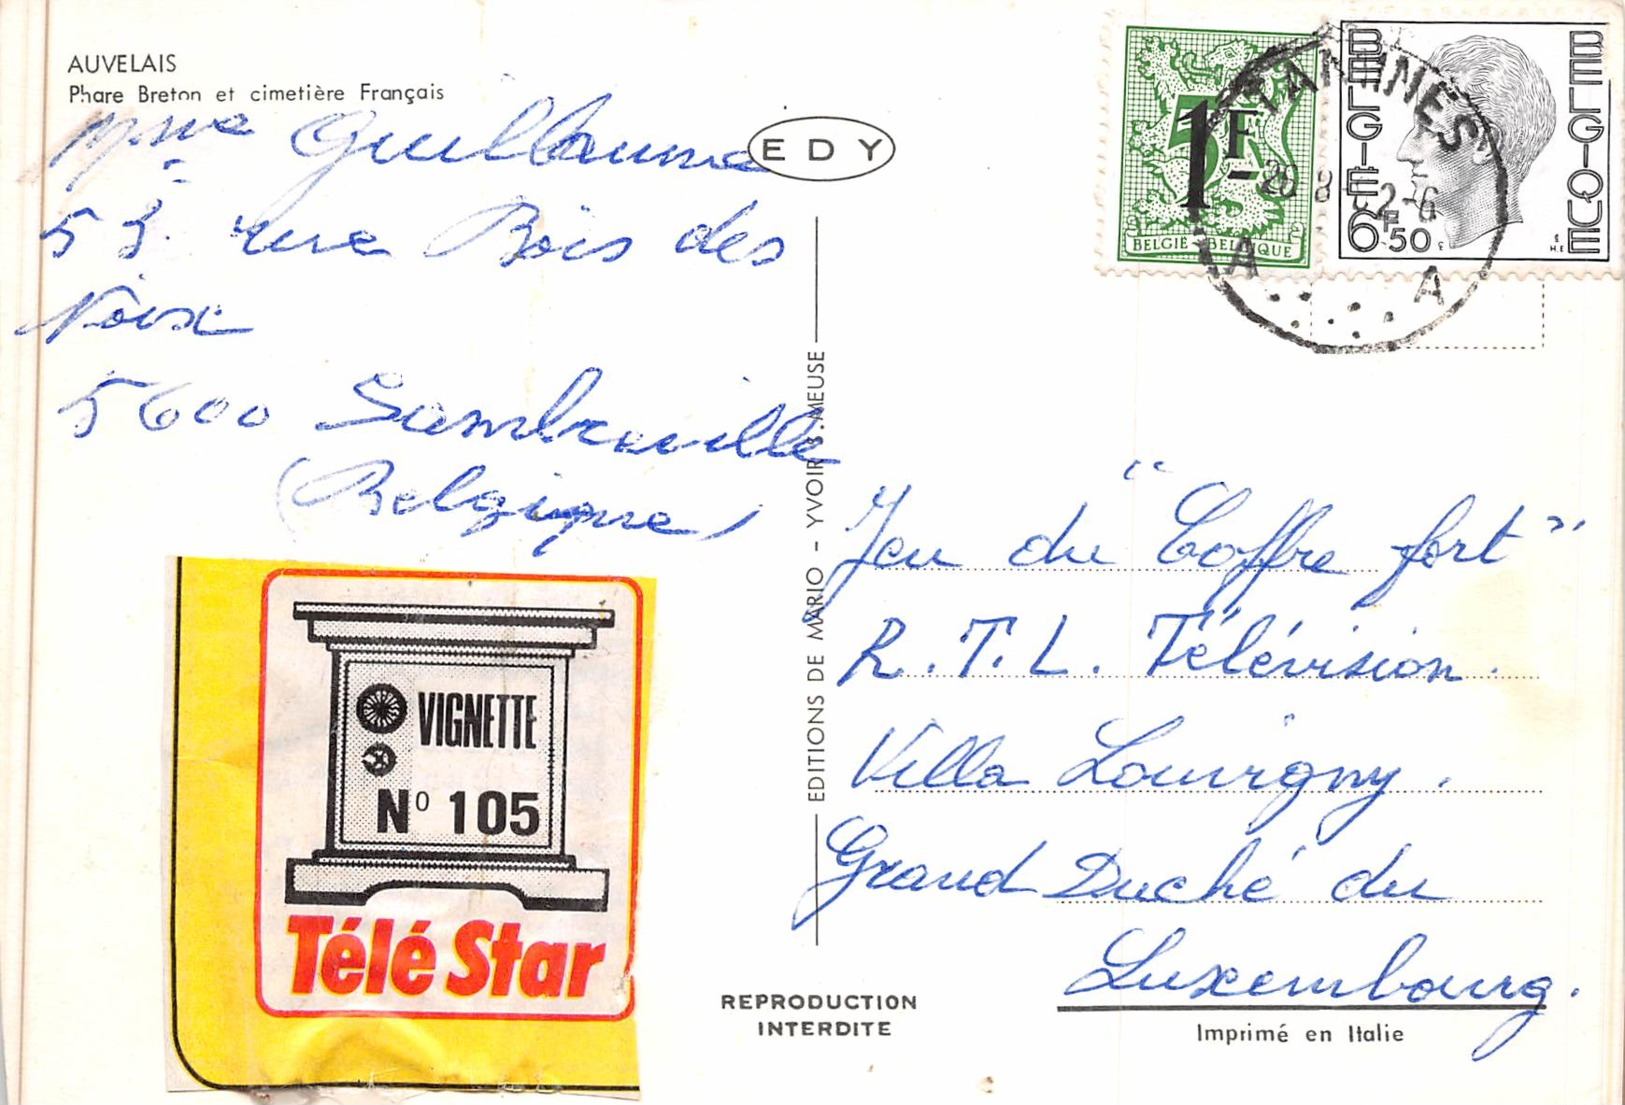 AUVELAIS
Phare Breton et cimetière Français
Mme Guillaume
53. rue Bois des
Noix
5600 Sambreville
(Belgique)
EDY
EDITIONS DE MARIO - YVOIR S. MEUSE
1F
BELGIË-BELGIQUE
BELGIË
BELGIQUE
6F50
TAMINES
A A
Jeu du "Coffre fort"
R.T.L. Télévision.
Villa Louvigny.
Grand Duché du
Luxembourg.
VIGNETTE
N° 105
Télé Star
REPRODUCTION
INTERDITE
Imprimé en Italie